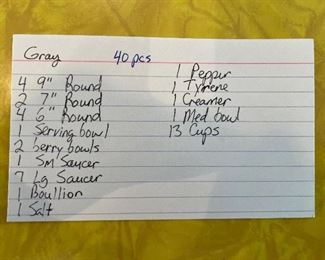 Gray 40 pcs
4 9" Round
2 7" Round
4 6" Round
1 Serving bowl
2 berry bowls
1 Sm Saucer
7 Lg Saucer
1 Boullion
1 Salt
1 Pepper
1 Tyrene
1 Creamer
1 Med bowl
13 Cups